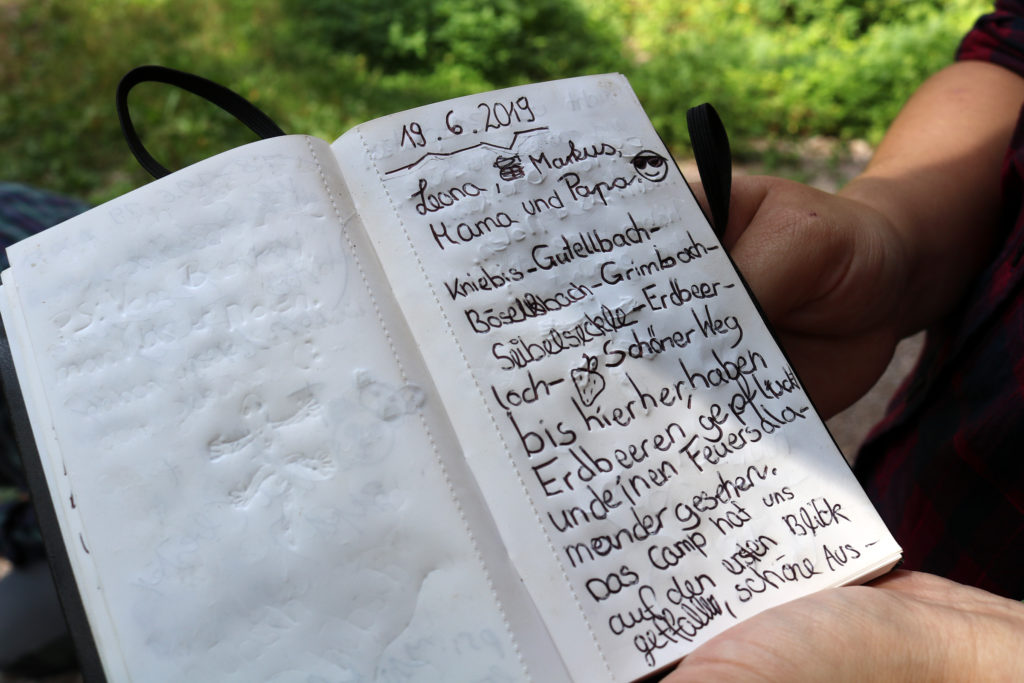 19.6.2019
Leona, Markus,
Mama und Papa.
Kniebis-Gutellbach-
Bösellbach-Grimbach-
Seibelseckle-Erdbeer-
loch- Schöner Weg
bis hierher, haben
Erdbeeren gepflückt
und einen Feuersala-
mander gesehen.
Das Camp hat uns
auf den ersten Blick
gefallen, schöne Aus-